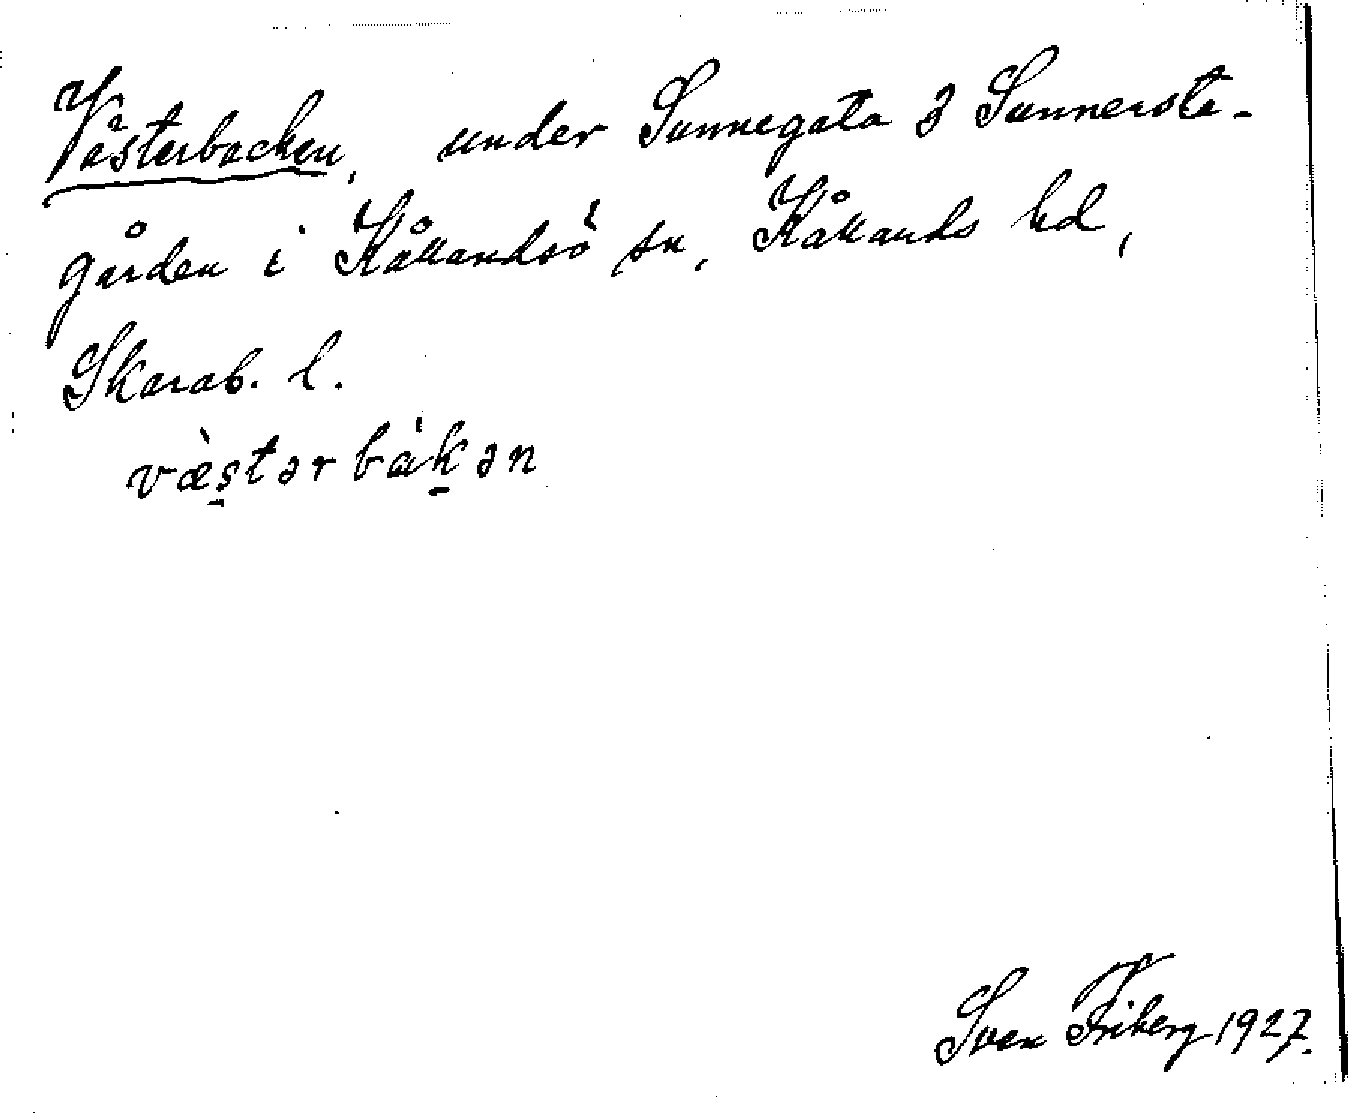 Västerbacken, under Sunnegata 3 Sunnersta-
gården i Kållandsö sn, Kållands hd,
Skarab. l.
væ̀s̠tərbàk̠ən
Sven Friberg 1927.